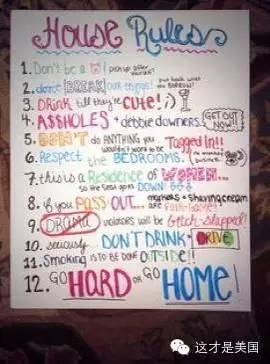 House Rules
1. Don't be a pick up after yourself!
2. don't BREAK our things! put back what you BORROW!
3. DRink till they're CUTE! ;)
4. A$$HOLES + debbie downers. GET OUT NOW!!
5. DON'T do ANYTHING you wouldn't want to be Tagged In!!
6. Respect the BEDROOMS.
7. this is a Residence of WOMEN... so the seat goes DOWN
8. if you PASS OUT... markers + shaving cream are FAIR-Game!
9. DRAMA violators will be Bitch-slapped!
10. seriously. DON'T DRINK + DRIVE
11. Smoking is TO BE DONE OUTSIDE!!
12. GO HARD OR GO HOME!
这才是美国